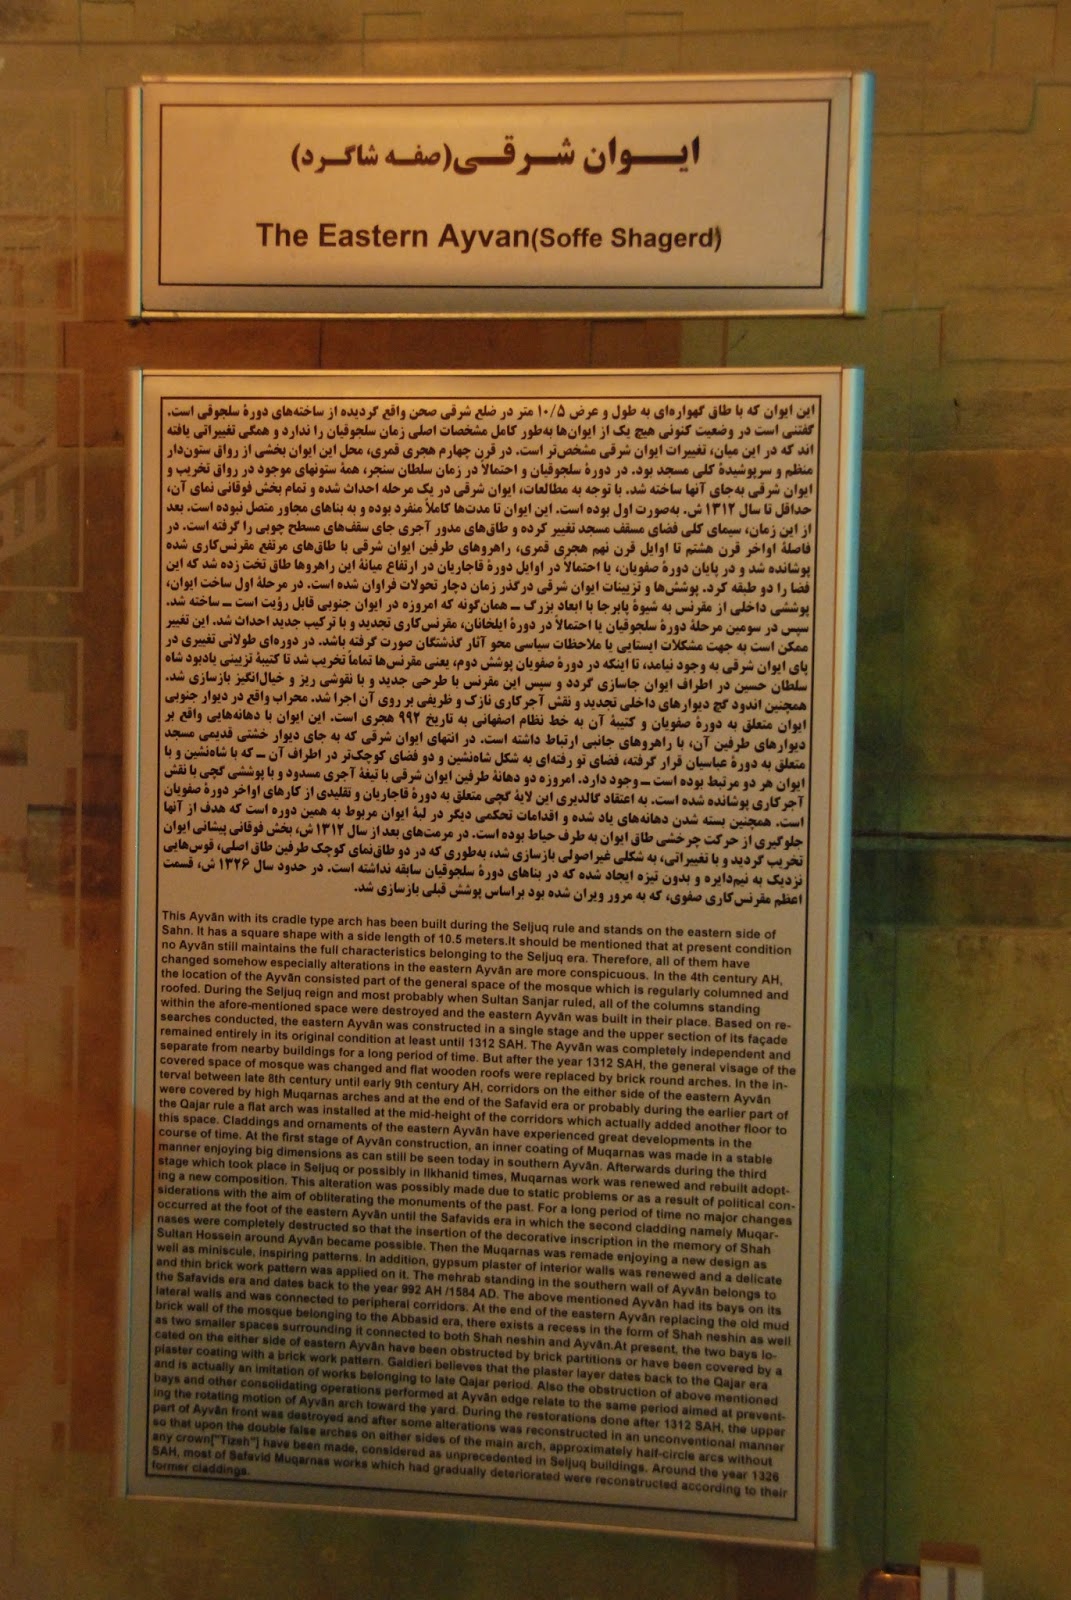 ایوان شرقی(صفه شاگرد)
The Eastern Ayvan(Soffe Shagerd)
این ایوان که با طاق گهواره‌ای به طول و عرض ۱۰/۵ متر در ضلع شرقی صحن واقع گردیده از ساخته‌های دورهٔ سلجوقی است.
گفتنی است در وضعیت کنونی هیچ یک از ایوان‌ها به‌طور کامل مشخصات اصلی زمان سلجوقیان را ندارد و همگی تغییراتی یافته
اند که در این میان، تغییرات ایوان شرقی مشخص‌تر است. در قرن چهارم هجری قمری، محل این ایوان بخشی از رواق ستون‌دار
منظم و سرپوشیدهٔ کلی مسجد بود. در دورهٔ سلجوقیان و احتمالاً در زمان سلطان سنجر، همهٔ ستونهای موجود در رواق تخریب و
ایوان شرقی به‌جای آنها ساخته شد. با توجه به مطالعات، ایوان شرقی در یک مرحله احداث شده و تمام بخش فوقانی نمای آن،
حداقل تا سال ۱۳۱۲ ش. به‌صورت اول بوده است. این ایوان تا مدت‌ها کاملاً منفرد بوده و به بناهای مجاور متصل نبوده است. بعد
از این زمان، سیمای کلی فضای مسقف مسجد تغییر کرده و طاق‌های مدور آجری جای سقف‌های مسطح چوبی را گرفته است. در
فاصلهٔ اواخر قرن هشتم تا اوایل قرن نهم هجری قمری، راهروهای طرفین ایوان شرقی با طاق‌های مرتفع مقرنس‌کاری شده
پوشانده شد و در پایان دورهٔ صفویان، یا احتمالاً در اوایل دورهٔ قاجاریان در ارتفاع میانهٔ این راهروها طاق تخت زده شد که این
فضا را دو طبقه کرد. پوشش‌ها و تزیینات ایوان شرقی درگذر زمان دچار تحولات فراوان شده است. در مرحلهٔ اول ساخت ایوان،
پوششی داخلی از مقرنس به شیوهٔ پابرجا با ابعاد بزرگ ــ همان‌گونه که امروزه در ایوان جنوبی قابل رؤیت است ــ ساخته شد.
سپس در سومین مرحلهٔ دورهٔ سلجوقیان یا احتمالاً در دورهٔ ایلخانان، مقرنس‌کاری تجدید و با ترکیب جدید احداث شد. این تغییر
ممکن است به جهت مشکلات ایستایی یا ملاحظات سیاسی محو آثار گذشتگان صورت گرفته باشد. در دوره‌ای طولانی تغییری در
پای ایوان شرقی به وجود نیامد، تا اینکه در دورهٔ صفویان پوشش دوم، یعنی مقرنس‌ها تماماً تخریب شد تا کتیبهٔ تزیینی یادبود شاه
سلطان حسین در اطراف ایوان جاسازی گردد و سپس این مقرنس با طرحی جدید و با نقوشی ریز و خیال‌انگیز بازسازی شد.
همچنین اندود گچ دیوارهای داخلی تجدید و نقش آجرکاری نازک و ظریفی بر روی آن اجرا شد. محراب واقع در دیوار جنوبی
ایوان متعلق به دورهٔ صفویان و کتیبهٔ آن به خط نظام اصفهانی به تاریخ ۹۹۲ هجری است. این ایوان با دهانه‌هایی واقع بر
دیوارهای طرفین آن، با راهروهای جانبی ارتباط داشته است. در انتهای ایوان شرقی که به جای دیوار خشتی قدیمی مسجد
متعلق به دورهٔ عباسیان قرار گرفته، فضای تو رفته‌ای به شکل شاه‌نشین و دو فضای کوچک‌تر در اطراف آن ــ که با شاه‌نشین و با
ایوان هر دو مرتبط بوده است ــ وجود دارد. امروزه دو دهانهٔ طرفین ایوان شرقی با تیغهٔ آجری مسدود و با پوششی گچی با نقش
آجرکاری پوشانده شده است. به اعتقاد گالدیری این لایهٔ گچی متعلق به دورهٔ قاجاریان و تقلیدی از کارهای اواخر دورهٔ صفویان
است. همچنین بسته شدن دهانه‌های یاد شده و اقدامات تحکمی دیگر در لبهٔ ایوان مربوط به همین دوره است که هدف از آنها
جلوگیری از حرکت چرخشی طاق ایوان به طرف حیاط بوده است. در مرمت‌های بعد از سال ۱۳۱۲ ش، بخش فوقانی پیشانی ایوان
تخریب گردید و با تغییراتی، به شکلی غیراصولی بازسازی شد، به‌طوری که در دو طاق‌نمای کوچک طرفین طاق اصلی، قوس‌هایی
نزدیک به نیم‌دایره و بدون تیزه ایجاد شده که در بناهای دورهٔ سلجوقیان سابقه نداشته است. در حدود سال ۱۳۲۶ ش، قسمت
اعظم مقرنس‌کاری صفوی، که به مرور ویران شده بود براساس پوشش قبلی بازسازی شد.
This Ayvān with its cradle type arch has been built during the Seljuq rule and stands on the eastern side of
Sahn. It has a square shape with a side length of 10.5 meters.It should be mentioned that at present condition
no Ayvān still maintains the full characteristics belonging to the Seljuq era. Therefore, all of them have
changed somehow especially alterations in the eastern Ayvān are more conspicuous. In the 4th century AH,
the location of the Ayvān consisted part of the general space of the mosque which is regularly columned and
roofed. During the Seljuq reign and most probably when Sultan Sanjar ruled, all of the columns standing
within the afore-mentioned space were destroyed and the eastern Ayvān was built in their place. Based on re-
searches conducted, the eastern Ayvān was constructed in a single stage and the upper section of its façade
remained entirely in its original condition at least until 1312 SAH. The Ayvān was completely independent and
separate from nearby buildings for a long period of time. But after the year 1312 SAH, the general visage of the
covered space of mosque was changed and flat wooden roofs were replaced by brick round arches. In the in-
terval between late 8th century until early 9th century AH, corridors on the either side of the eastern Ayvān
were covered by high Muqarnas arches and at the end of the Safavid era or probably during the earlier part of
the Qajar rule a flat arch was installed at the mid-height of the corridors which actually added another floor to
this space. Claddings and ornaments of the eastern Ayvān have experienced great developments in the
course of time. At the first stage of Ayvān construction, an inner coating of Muqarnas was made in a stable
manner enjoying big dimensions as can still be seen today in southern Ayvān. Afterwards during the third
stage which took place in Seljuq or possibly in Ilkhanid times, Muqarnas work was renewed and rebuilt adopt-
ing a new composition. This alteration was possibly made due to static problems or as a result of political con-
siderations with the aim of obliterating the monuments of the past. For a long period of time no major changes
occurred at the foot of the eastern Ayvān until the Safavids era in which the second cladding namely Muqar-
nases were completely destructed so that the insertion of the decorative inscription in the memory of Shah
Sultan Hossein around Ayvān became possible. Then the Muqarnas was remade enjoying a new design as
well as miniscule, inspiring patterns. In addition, gypsum plaster of interior walls was renewed and a delicate
and thin brick work pattern was applied on it. The mehrab standing in the southern wall of Ayvān belongs to
the Safavids era and dates back to the year 992 AH /1584 AD. The above mentioned Ayvān had its bays on its
lateral walls and was connected to peripheral corridors. At the end of the eastern Ayvān replacing the old mud
brick wall of the mosque belonging to the Abbasid era, there exists a recess in the form of Shah neshin as well
as two smaller spaces surrounding it connected to both Shah neshin and Ayvān.At present, the two bays lo-
cated on the either side of eastern Ayvān have been obstructed by brick partitions or have been covered by a
plaster coating with a brick work pattern. Galdieri believes that the plaster layer dates back to the Qajar era
and is actually an imitation of works belonging to late Qajar period. Also the obstruction of above mentioned
bays and other consolidating operations performed at Ayvān edge relate to the same period aimed at prevent-
ing the rotating motion of Ayvān arch toward the yard. During the restorations done after 1312 SAH, the upper
part of Ayvān front was destroyed and after some alterations was reconstructed in an unconventional manner
so that upon the double false arches on either sides of the main arch, approximately half-circle arcs without
any crown["Tizeh"] have been made, considered as unprecedented in Seljuq buildings. Around the year 1326
SAH, most of Safavid Muqarnas works which had gradually deteriorated were reconstructed according to their
former claddings.